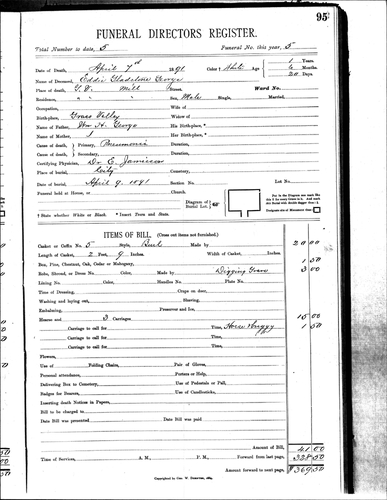 95
FUNERAL DIRECTORS REGISTER.
Total Number to date, 5 Funeral No. this year, 5
Date of Death, April 7th 1891 Color † White Age 1 Years
6 Months.
20 Days.
Name of Deceased, Eddie Gladstone George
Place of Death, G. V. Mill Street, Ward No.
Residence, " " " Sex, Male Single, Married,
Occupation, Wife of
Birth-place, Grass Valley Widow of
Name of Father, Wm H. George His Birth-place, *
Name of Mother, Her Birth-place, *
Cause of Death, Primary, Pneumonia Duration,
Cause of Death, Secondary, Duration,
Certifying Physician, Dr. E. Jamieson
Place of burial, City Cemetery,
Date of burial, April 9, 1891 Section No. Lot No.
Funeral held at House, or Church.
Diagram of Burial Lot,
† State whether White or Black. * Insert Town and State.
ITEMS OF BILL. (Cross out items not furnished.)
Casket or Coffin No. 5 Style, Made by 20 00
Length of Casket, 2 Feet, 9 Inches. Width of Casket, Inches.
Box, Pine, Chestnut, Oak, Cedar or Mahogany, 1 50
Robe, Shroud, or Dress No. Color, Made by Digging Grave 3 00
Lining No. Color, Handles No. Plate No.
Time of Dressing, Crape on door,
Washing and laying out, Shaving,
Embalming, Preserver and Ice,
Hearse and 3 Carriages 15 00
Carriage to call for Time, Horse Buggy 1 50
Carriage to call for Time,
Flowers,
Use of Folding Chairs, Pair of Gloves,
Personal attendance, Porters or Help,
Delivering Box to Cemetery, Use of Pedestals or Pall,
Badges for Bearers, Use of Candlesticks,
Inserting death Notices in Papers,
Bill to be charged to
Date Bill was presented Date Bill was paid
Amount of Bill, 41.00
Time of Services, A. M., P. M., Forward from last page, 328.50
Amount forward to next page, $369.50